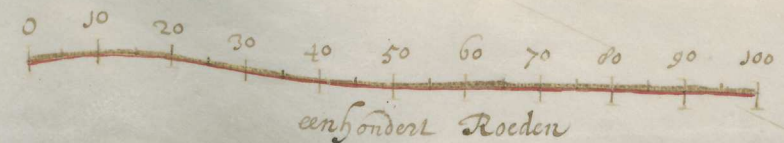 0 10 20 30 40 50 60 70 80 90 100
eenhondert Roeden